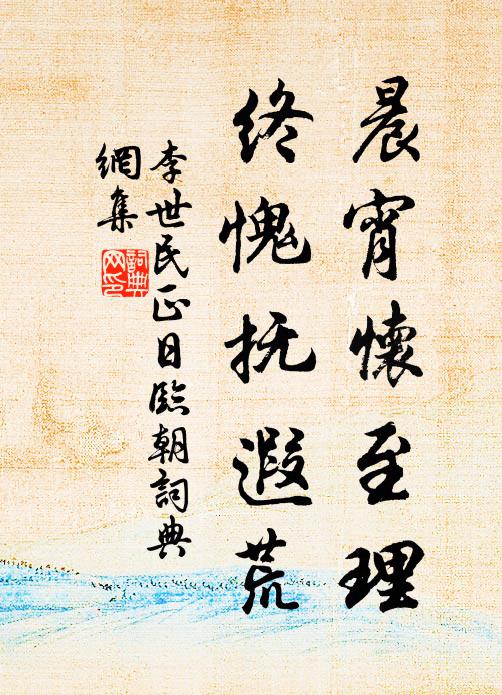 晨宵懷至理
终愧抚遐荒
李世民正日臨朝詞典
網集
詞典
网印